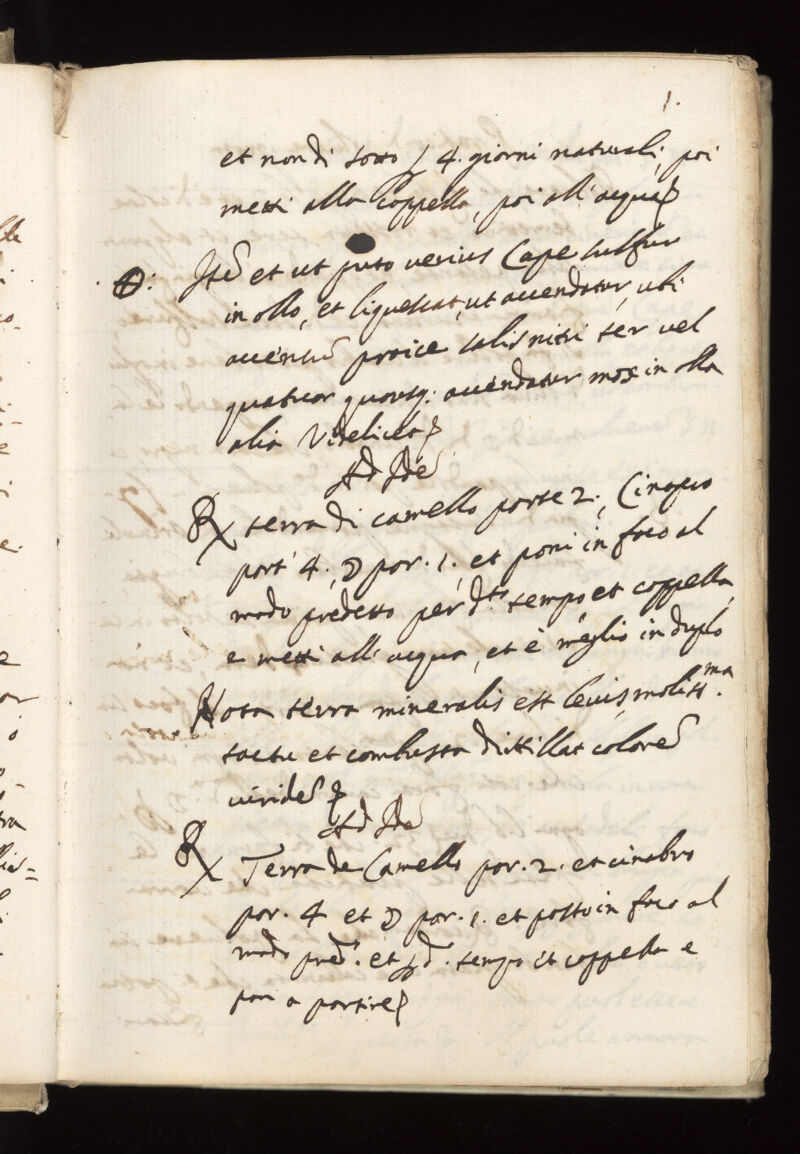 1.
et non di sotto p 4. giorni naturali, poi
metti alla coppella, poi all' acqua
⊕: Itē et ut puto verius Cape sulfur
in olla, et liquescat, ut accendatur, ubi
accensū proice salis nitri ter vel
quatuor quousq; accendatur mox in olla
alia Videlicet
Ad Idē
℞ terra di camello parte 2., Cinapio
part' 4., ☽ por. 1., et poni in foco al
modo predetto per d.to tempo et coppella,
e metti all' acqua, et è meglio in duplo
Nota terra mineralis est levis, molis.ma
tactu et combusta distillat colorē
viridē
Ad Idē
℞ Terra de Camello por. 2. et cinabro
por. 4 et ☽ por. 1. et posto in foco al
modo pred. et p d. tempo et coppella e
poni a partire